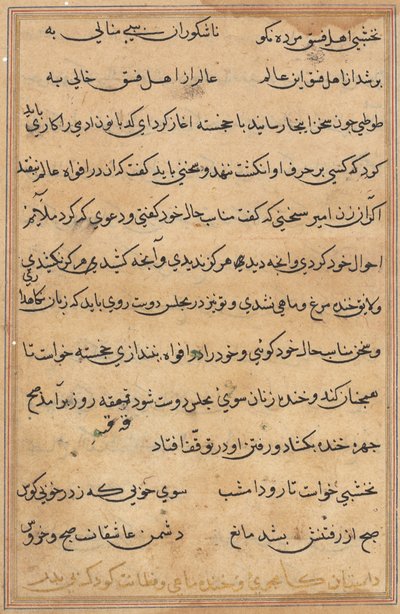 نخشبی اهل فسق مرده نکو ناشکوران منالی به
پر شد از اهل فسق این عالم عالم از اهل فسق خالی به
طوطی چون سخن اینجا رسانید با خجسته اغاز کرد ای کدبانو ادمی را کاری باید
کرد که کسی بر حرف او انگشت ننهد و سخنی باید گفت که ان در افواه عالم نیفتد
اگر آن زن امیر سخنی که گفت مناسب حال خود گفتی و دعوی که کرد ملایم
احوال خود کردی و انچه دید هرگز ندیدی و آنچه کشید هرگز نکشیدی
و لایق خنده مرغ و ماهی نشدی و تو نیز در مجلس دوست روی باید که زبان نگاهداری
و سخن مناسب حال خود گوئی و خود را در افواه نیندازی خجسته خواست تا
همچنان کند و خنده زنان سوی مجلس دوست شود قهقه روز برآمد صبح
چهره خنده بکشاد و رفتن او در توقف افتاد
نخشبی خواست تا رود امشب سوی خوبی که زد ز خوبی کوس
صبح از رفتنش بشد مانع دشمن عاشقانست صبح و خروس
داستان و خنده ماهی و فطانت کودک